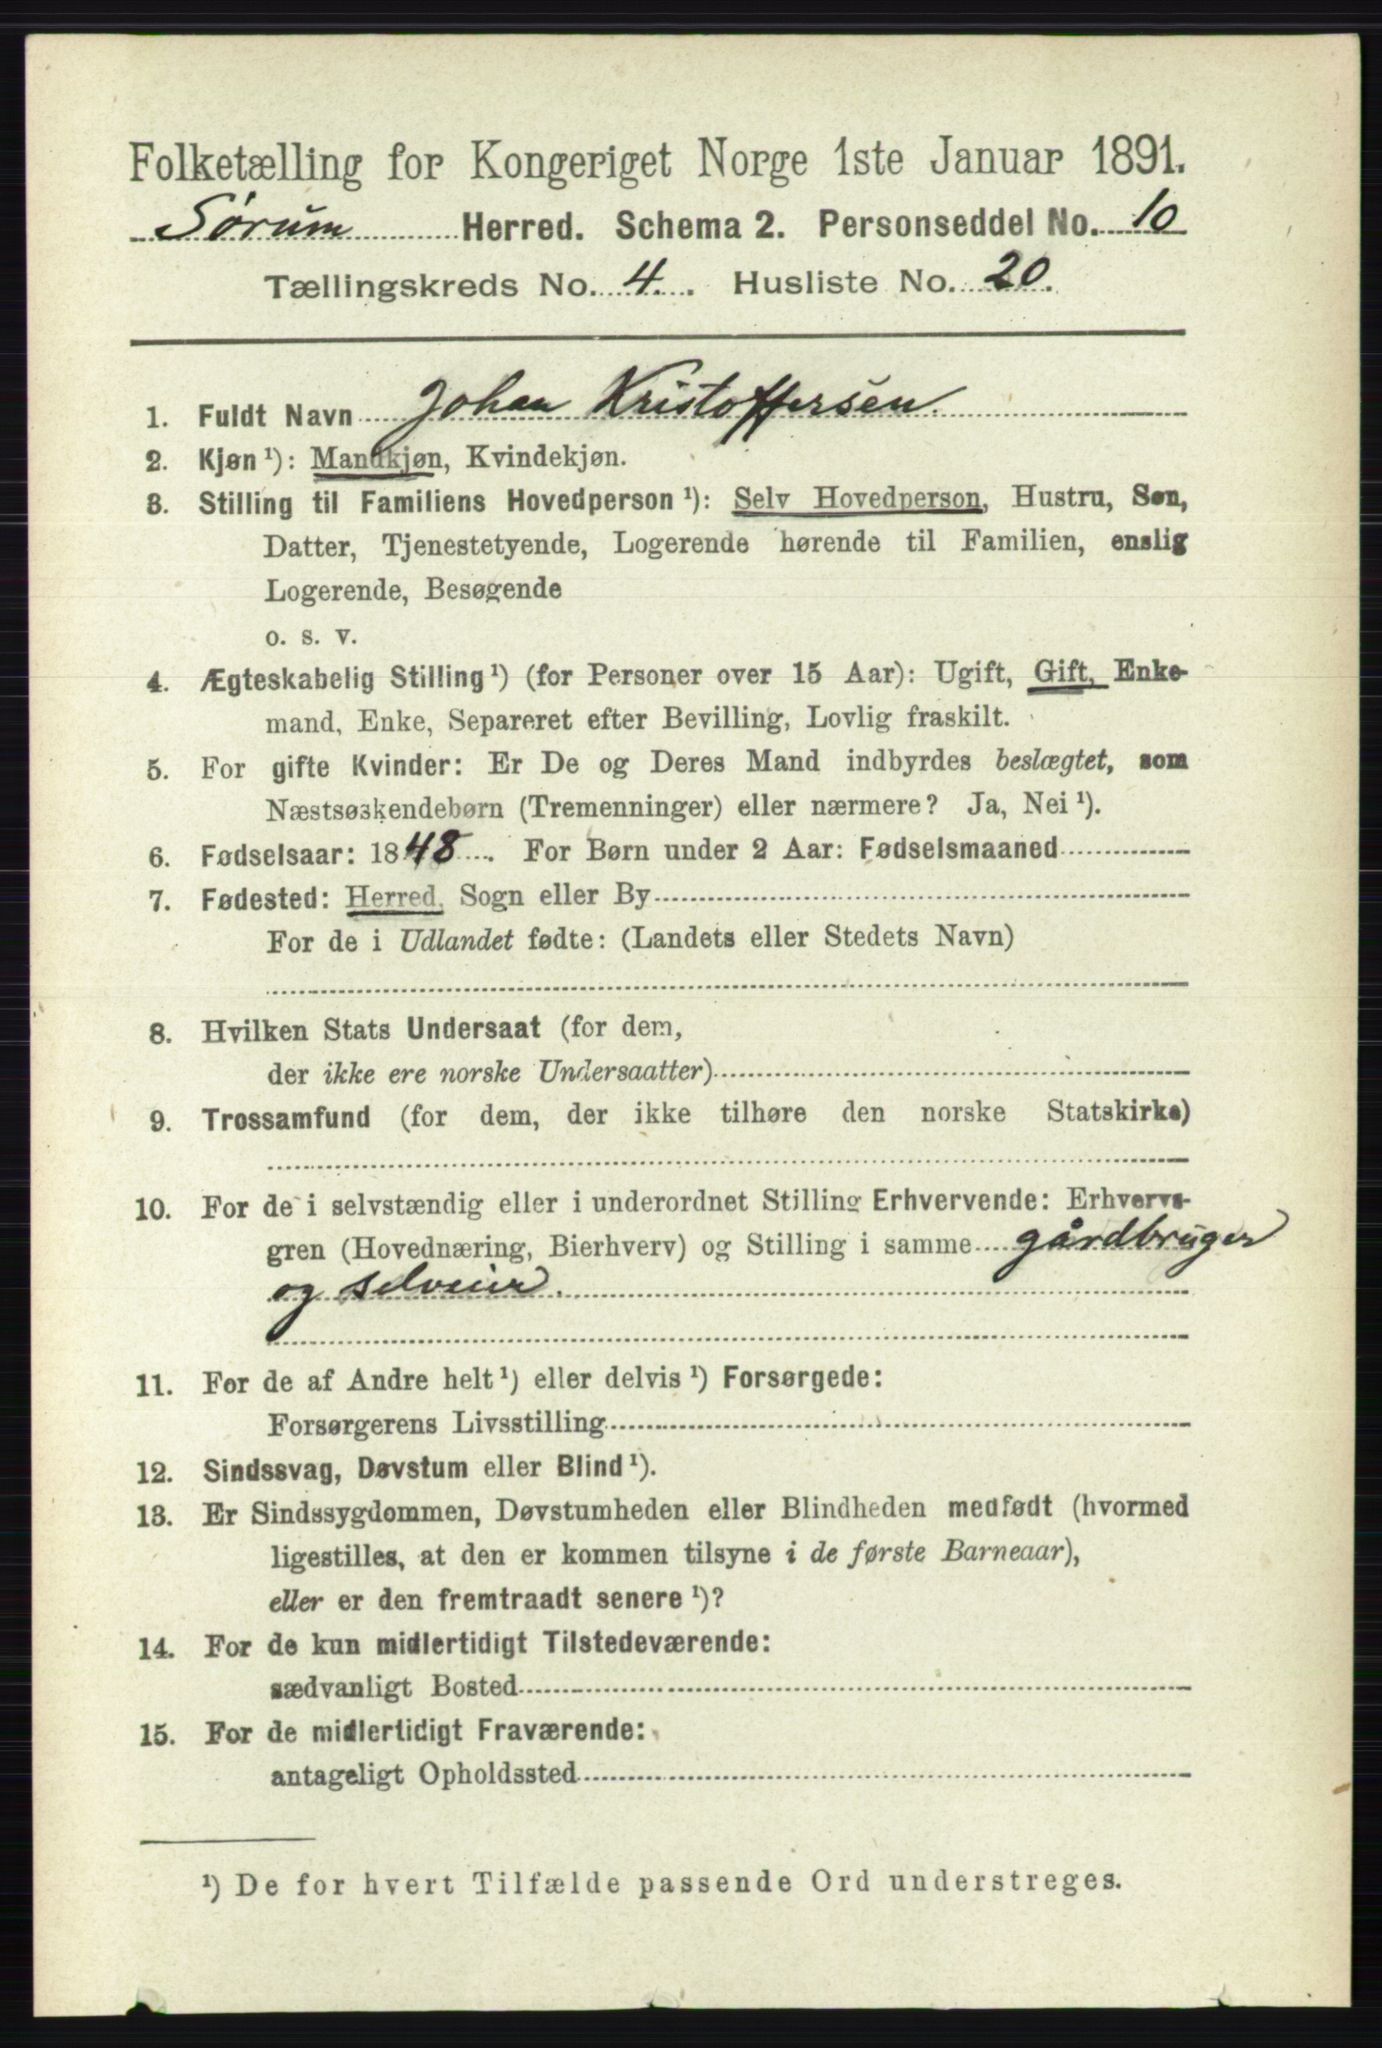 Folketælling for Kongeriget Norge 1ste Januar 1891.
Sørum Herred. Schema 2. Personseddel No. 10
Tællingskreds No. 4. Husliste No. 20.
1. Fuldt Navn Johan Kristoffersen.
2. Kjøn ¹): Mandkjøn, Kvindekjøn.
3. Stilling til Familiens Hovedperson ¹): Selv Hovedperson, Hustru, Søn,
Datter, Tjenestetyende, Logerende hørende til Familien, enslig
Logerende, Besøgende
o. s. v.
4. Ægteskabelig Stilling ¹) (for Personer over 15 Aar): Ugift, Gift, Enke-
mand, Enke, Separeret efter Bevilling, Lovlig fraskilt.
5. For gifte Kvinder: Er De og Deres Mand indbyrdes beslægtet, som
Næstsøskendebørn (Tremenninger) eller nærmere? Ja, Nei ¹).
6. Fødselsaar: 1848. For Børn under 2 Aar: Fødselsmaaned
7. Fødested: Herred, Sogn eller By
For de i Udlandet fødte: (Landets eller Stedets Navn)
8. Hvilken Stats Undersaat (for dem,
der ikke ere norske Undersaatter)
9. Trossamfund (for dem, der ikke tilhøre den norske Statskirke)
10. For de i selvstændig eller i underordnet Stilling Erhvervende: Erhvervs-
gren (Hovednæring, Bierhverv) og Stilling i samme gårdbruger
og selveier.
11. For de af Andre helt ¹) eller delvis ¹) Forsørgede:
Forsørgerens Livsstilling
12. Sindssvag, Døvstum eller Blind ¹).
13. Er Sindssygdommen, Døvstumheden eller Blindheden medfødt (hvormed
ligestilles, at den er kommen tilsyne i de første Barneaar),
eller er den fremtraadt senere ¹)?
14. For de kun midlertidigt Tilstedeværende:
sædvanligt Bosted
15. For de midlertidigt Fraværende:
antageligt Opholdssted
¹) De for hvert Tilfælde passende Ord understreges.